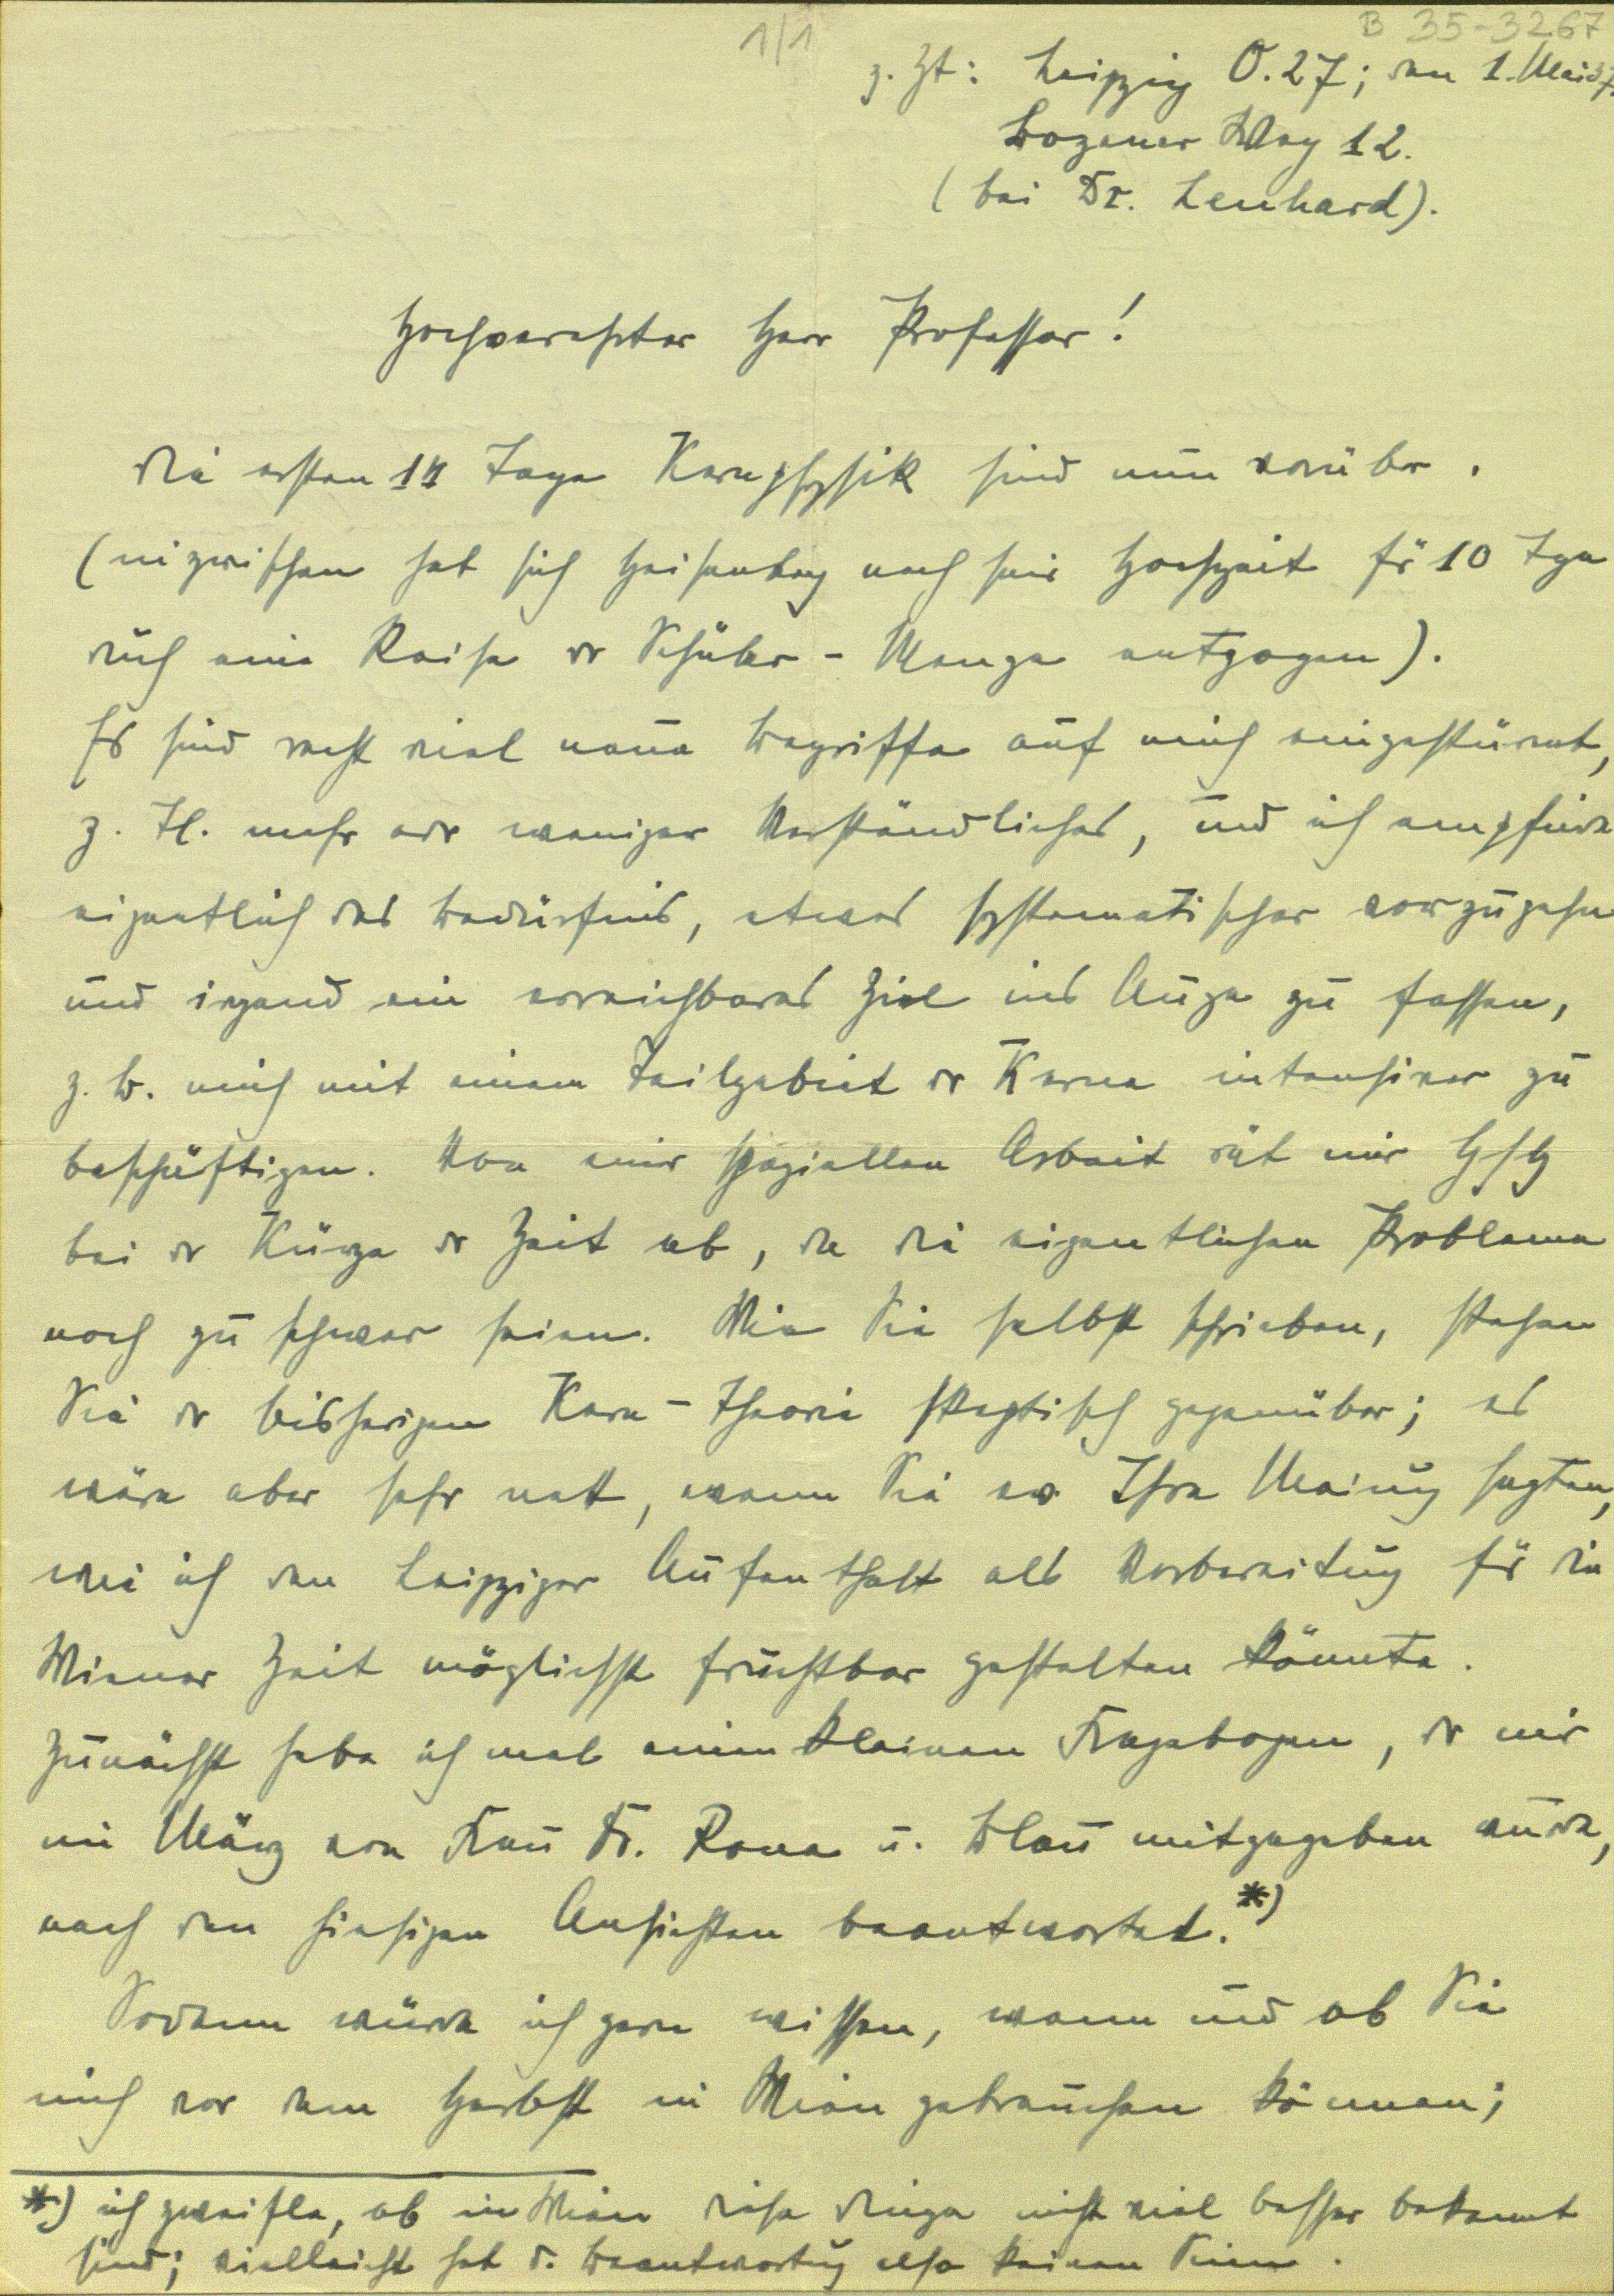 1/1
B 35-3267
z. Zt: Leipzig O.27; den 1. Mai 37.
Bozener Weg 12.
(bei Dr. Lenhard).
Hochverehrter Herr Professor!
Die ersten 14 Tage Kernphysik sind nun vorüber.
(inzwischen hat sich Heisenberg nach seir Hochzeit für 10 Tge
durch eine Reise dr Schüler-Menge entzogen).
Es sind recht viel neue Begriffe auf mich eingestürmt,
z. Tl. mehr odr weniger Verständliches, und ich empfinde
eigentlich das Bedürfnis, etwas systematischer vorzugehen
und irgend ein erreichbares Ziel ins Auge zu fassen,
z. B. mich mit einem Teilgebiet dr Kerne intensiver zu
beschäftigen. Von einer speziellen Arbeit rät mir Hsbg
bei dr Kürze dr Zeit ab, da die eigentlichen Probleme
noch zu schwer seien. Wie Sie selbst schrieben, stehen
Sie dr bisherigen Kern-Theorie skeptisch gegenüber; es
wäre aber sehr nett, wenn Sie ev. Ihre Meinung sagten,
wie ich den Leipziger Aufenthalt als Vorbereitung für die
Wiener Zeit möglichst fruchtbar gestalten könnte.
Zunächst habe ich mal einen kleinen Fragebogen, dr mir
im März von Frau Dr. Rona u. Blau mitgegeben wurde,
nach den hiesigen Ansichten beantwortet.*)
Sodann würde ich gern wissen, wann und ob Sie
mich vor dem Herbst in Wien gebrauchen können;
*) ich zweifle, ob in Wien diese Dinge nicht viel besser bekannt
sind; vielleicht hat d. Beantwortung also keinen Sinn.